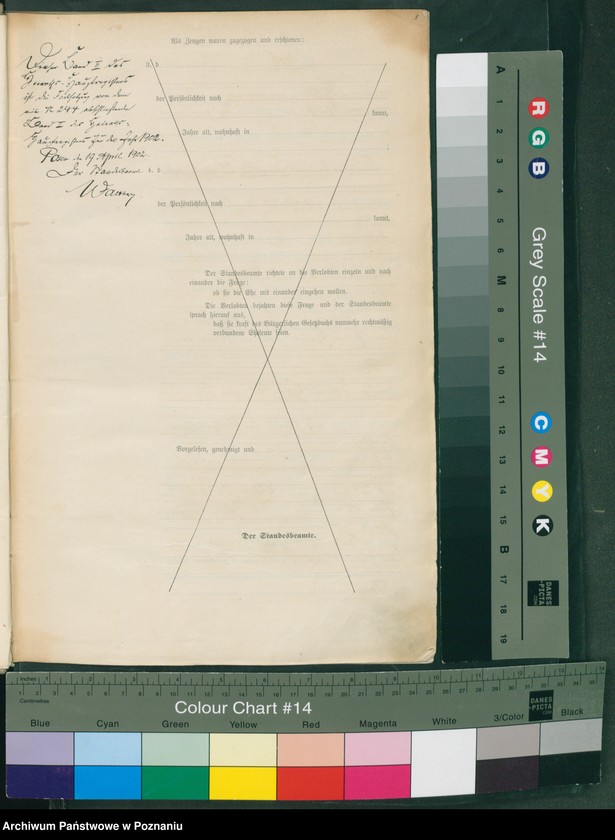 Als Zeugen waren zugezogen und erschienen:
Dieser Band II des
Heirats-Hauptregisters
ist die Fortsetzung von dem
mit N 244 abschließenden
Band I des Heirats-
Hauptregisters für das Jahr 1902.
Posen den 19. April 1902.
Der Standesbeamte
der Persönlichkeit nach
kannt,
Jahre alt, wohnhaft in
der Persönlichkeit nach
kannt,
Jahre alt, wohnhaft in
Der Standesbeamte richtete an die Verlobten einzeln und nach
einander die Frage:
ob sie die Ehe mit einander eingehen wollen.
Die Verlobten bejahten diese Frage und der Standesbeamte
sprach hierauf aus,
daß sie kraft des Bürgerlichen Gesetzbuchs nunmehr rechtmäßig
verbundene Eheleute seien.
Vorgelesen, genehmigt und
Der Standesbeamte.
Grey Scale #14
R
G
B
C
M
Y
K
A
1
2
3
4
5
6
M
8
9
10
11
12
13
14
15
B
17
18
19
DANES
-PICTA
.COM
Inches
Centimetres
Colour Chart #14
DANES
-PICTA
.COM
Blue
Cyan
Green
Yellow
Red
Magenta
White
3/Color
Black
Archiwum Państwowe w Poznaniu